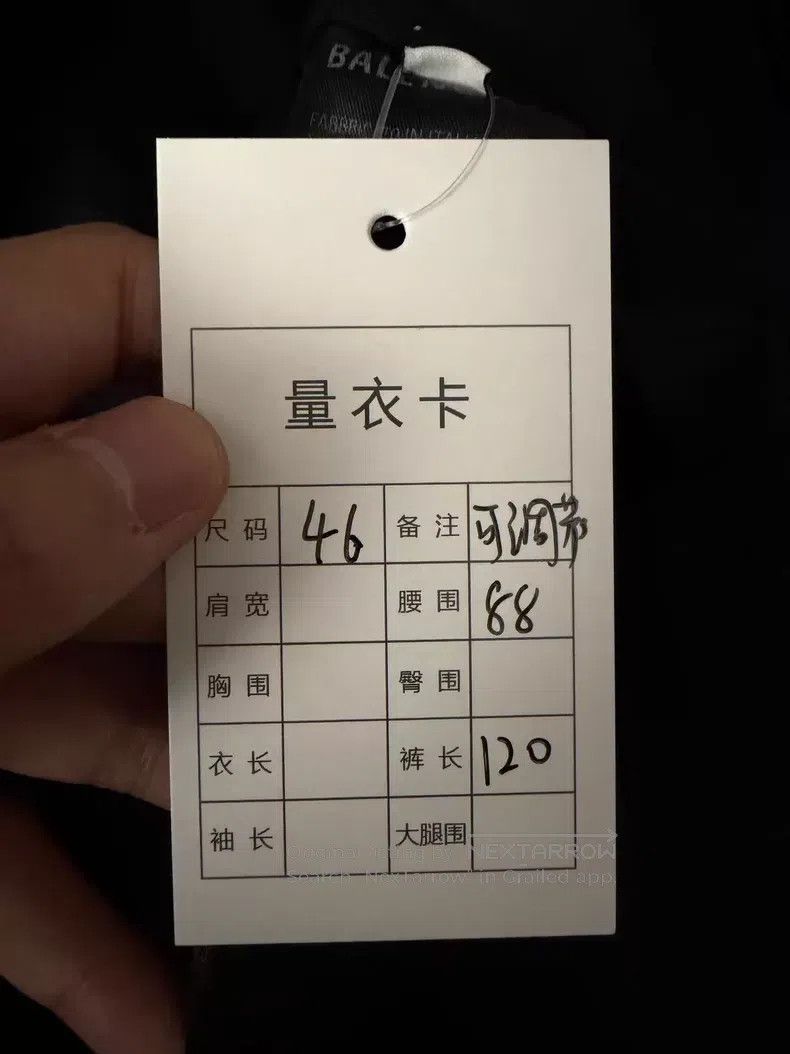 量衣卡
尺码 46 备注 可调节
肩宽 腰围 88
胸围 臀围
衣长 裤长 120
袖长 大腿围
NEXTARROW
Search "NexTarrow" in Grailed app.